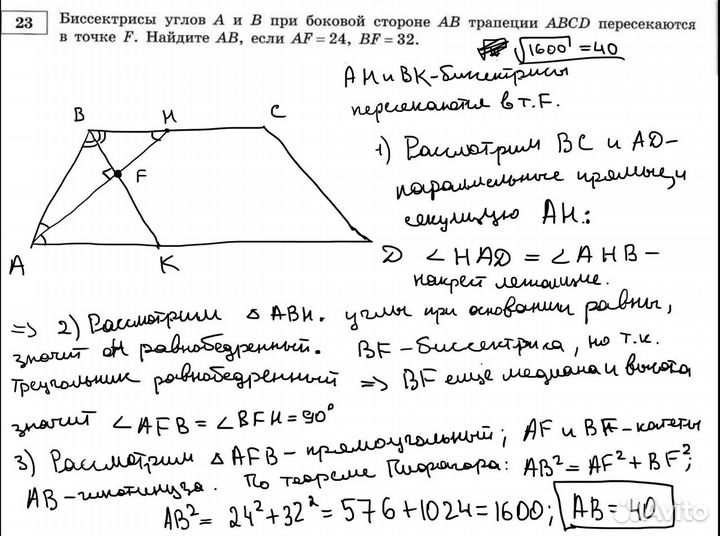 23 Биссектрисы углов A и B при боковой стороне AB трапеции ABCD пересекаются
в точке F. Найдите AB, если AF = 24, BF = 32.
√1600 = 40
AH и BK - биссектрисы
пересекаются в т. F.
B H C
F
A K D
1) Рассмотрим BC и AD -
параллельные прямые, и
секущую AH:
∠HAD = ∠AHB -
накрест лежащие.
=> 2) Рассмотрим △ABH. углы при основании равны,
значит он равнобедренный. BF - биссектриса, но т.к.
треугольник равнобедренный => BF еще медиана и высота
значит ∠AFB = ∠BFH = 90°
3) Рассмотрим △AFB - прямоугольный; AF и BF - катеты
AB - гипотенуза. По теореме Пифагора: AB² = AF² + BF²;
AB² = 24² + 32² = 576 + 1024 = 1600; AB = 40
Avito